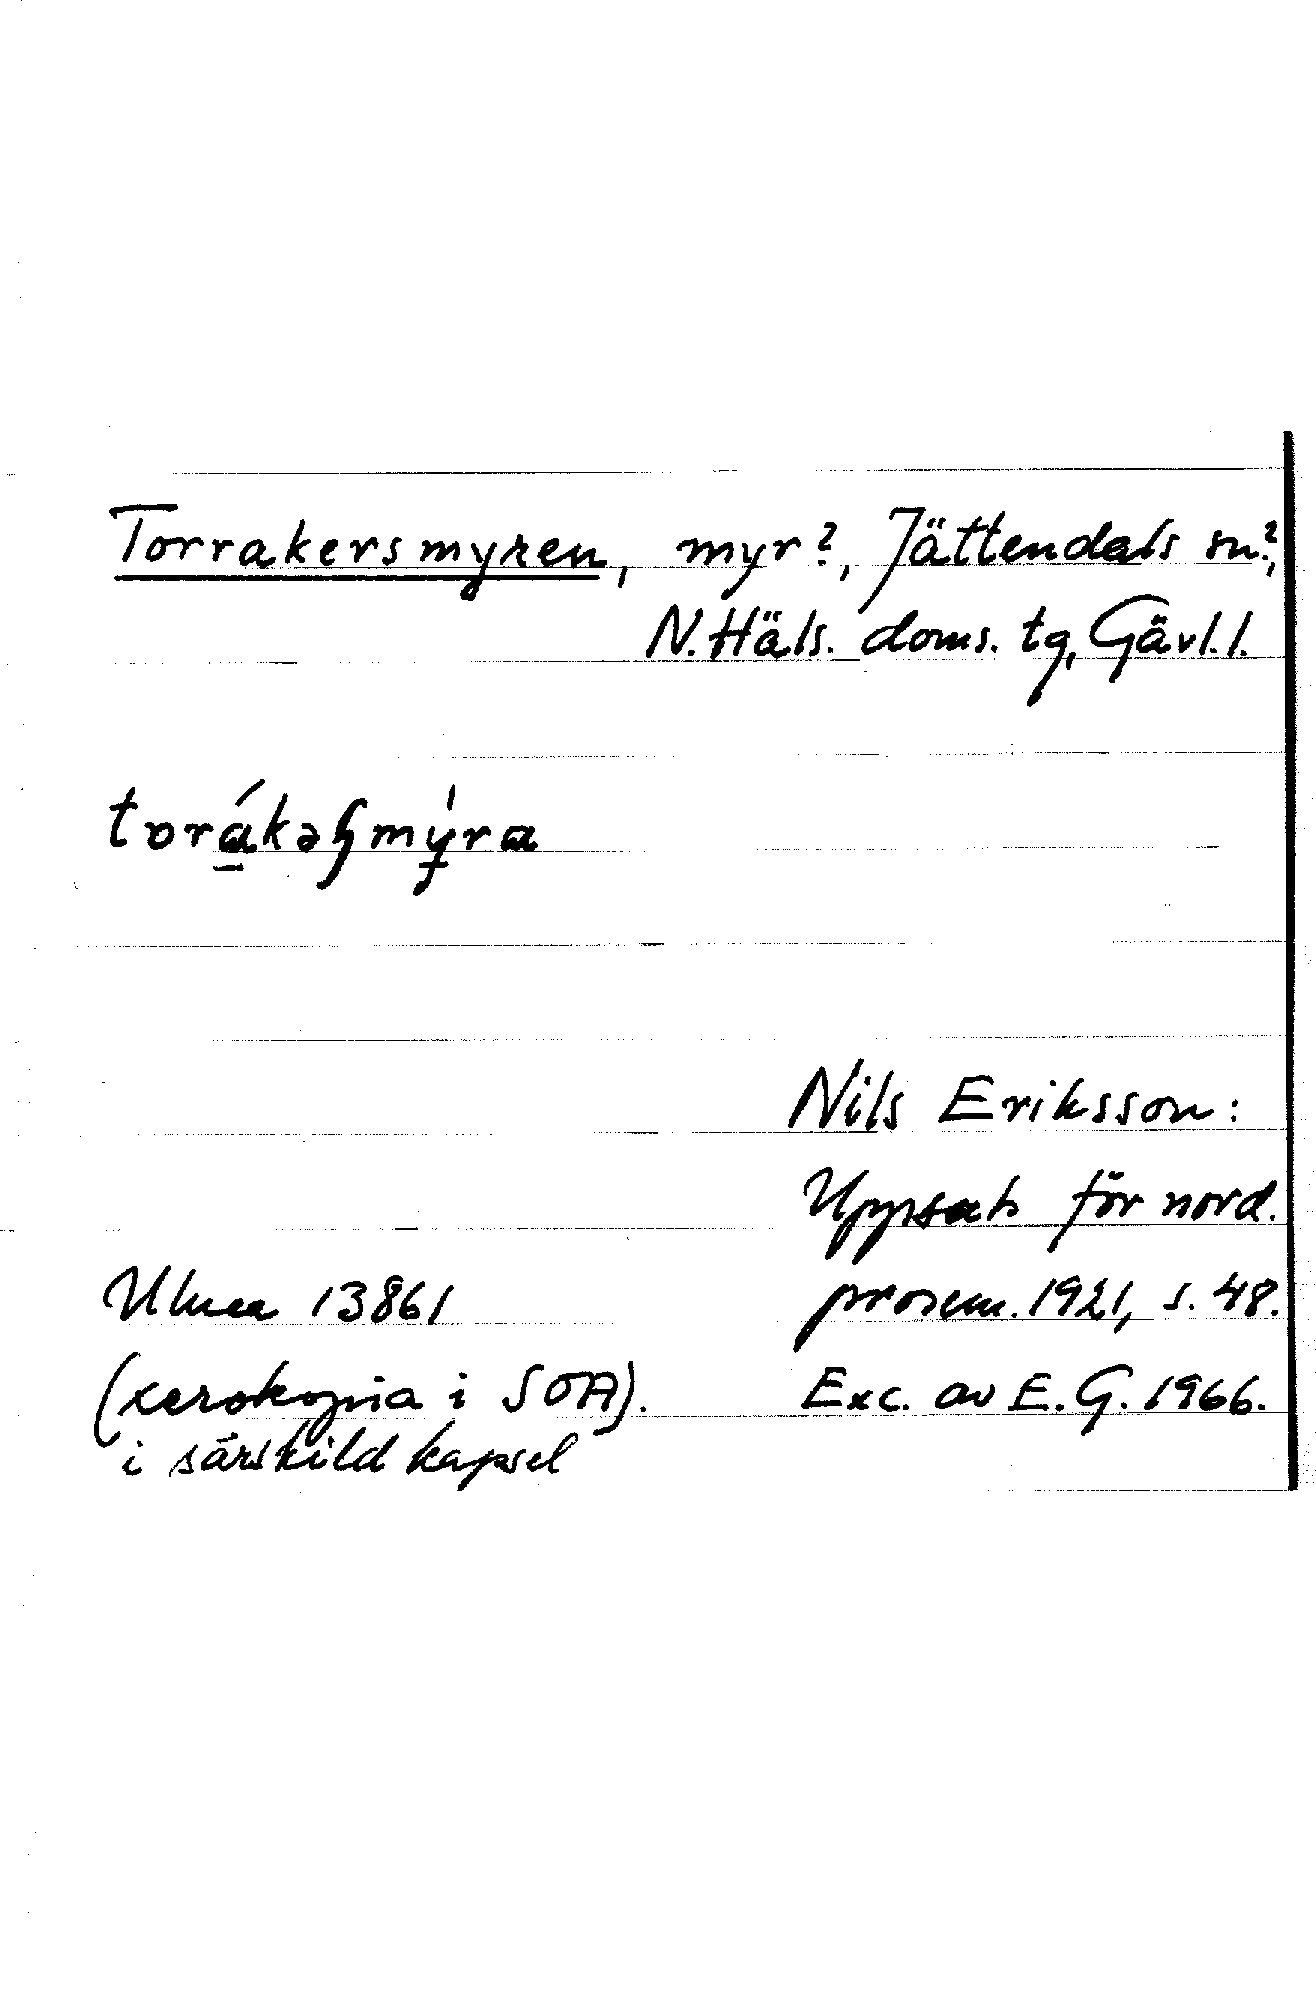 Torrakersmyren, myr?, Jättendals sn?,
N. Häls. doms. tg, Gävl. l.
Nils Eriksson:
Uppsats för nord.
prosem. 1921, s. 48.
Exc. av E. G. 1966.
Ulma 13861
(xerokopia i SOA).
i särskild kapsel